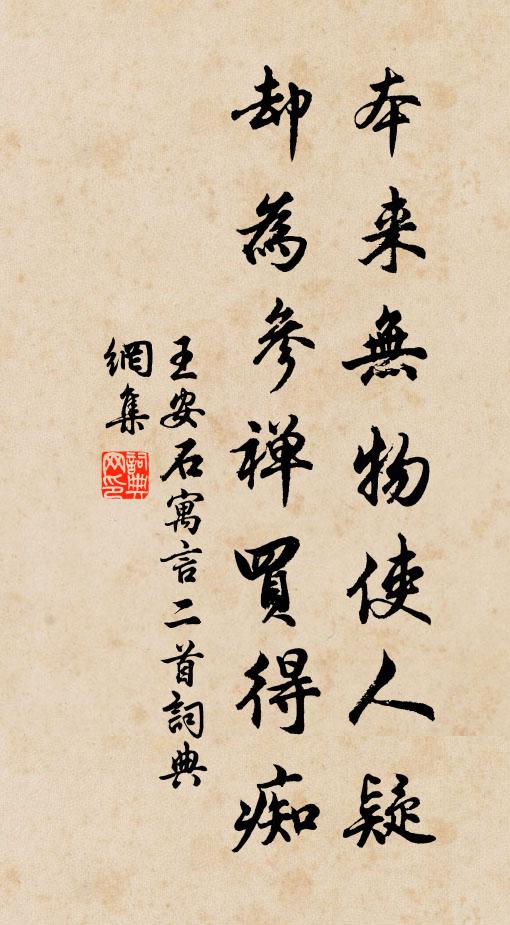 本来無物使人疑
却為參禅買得痴
王安石寓言二首詞典
網集
詞典網印